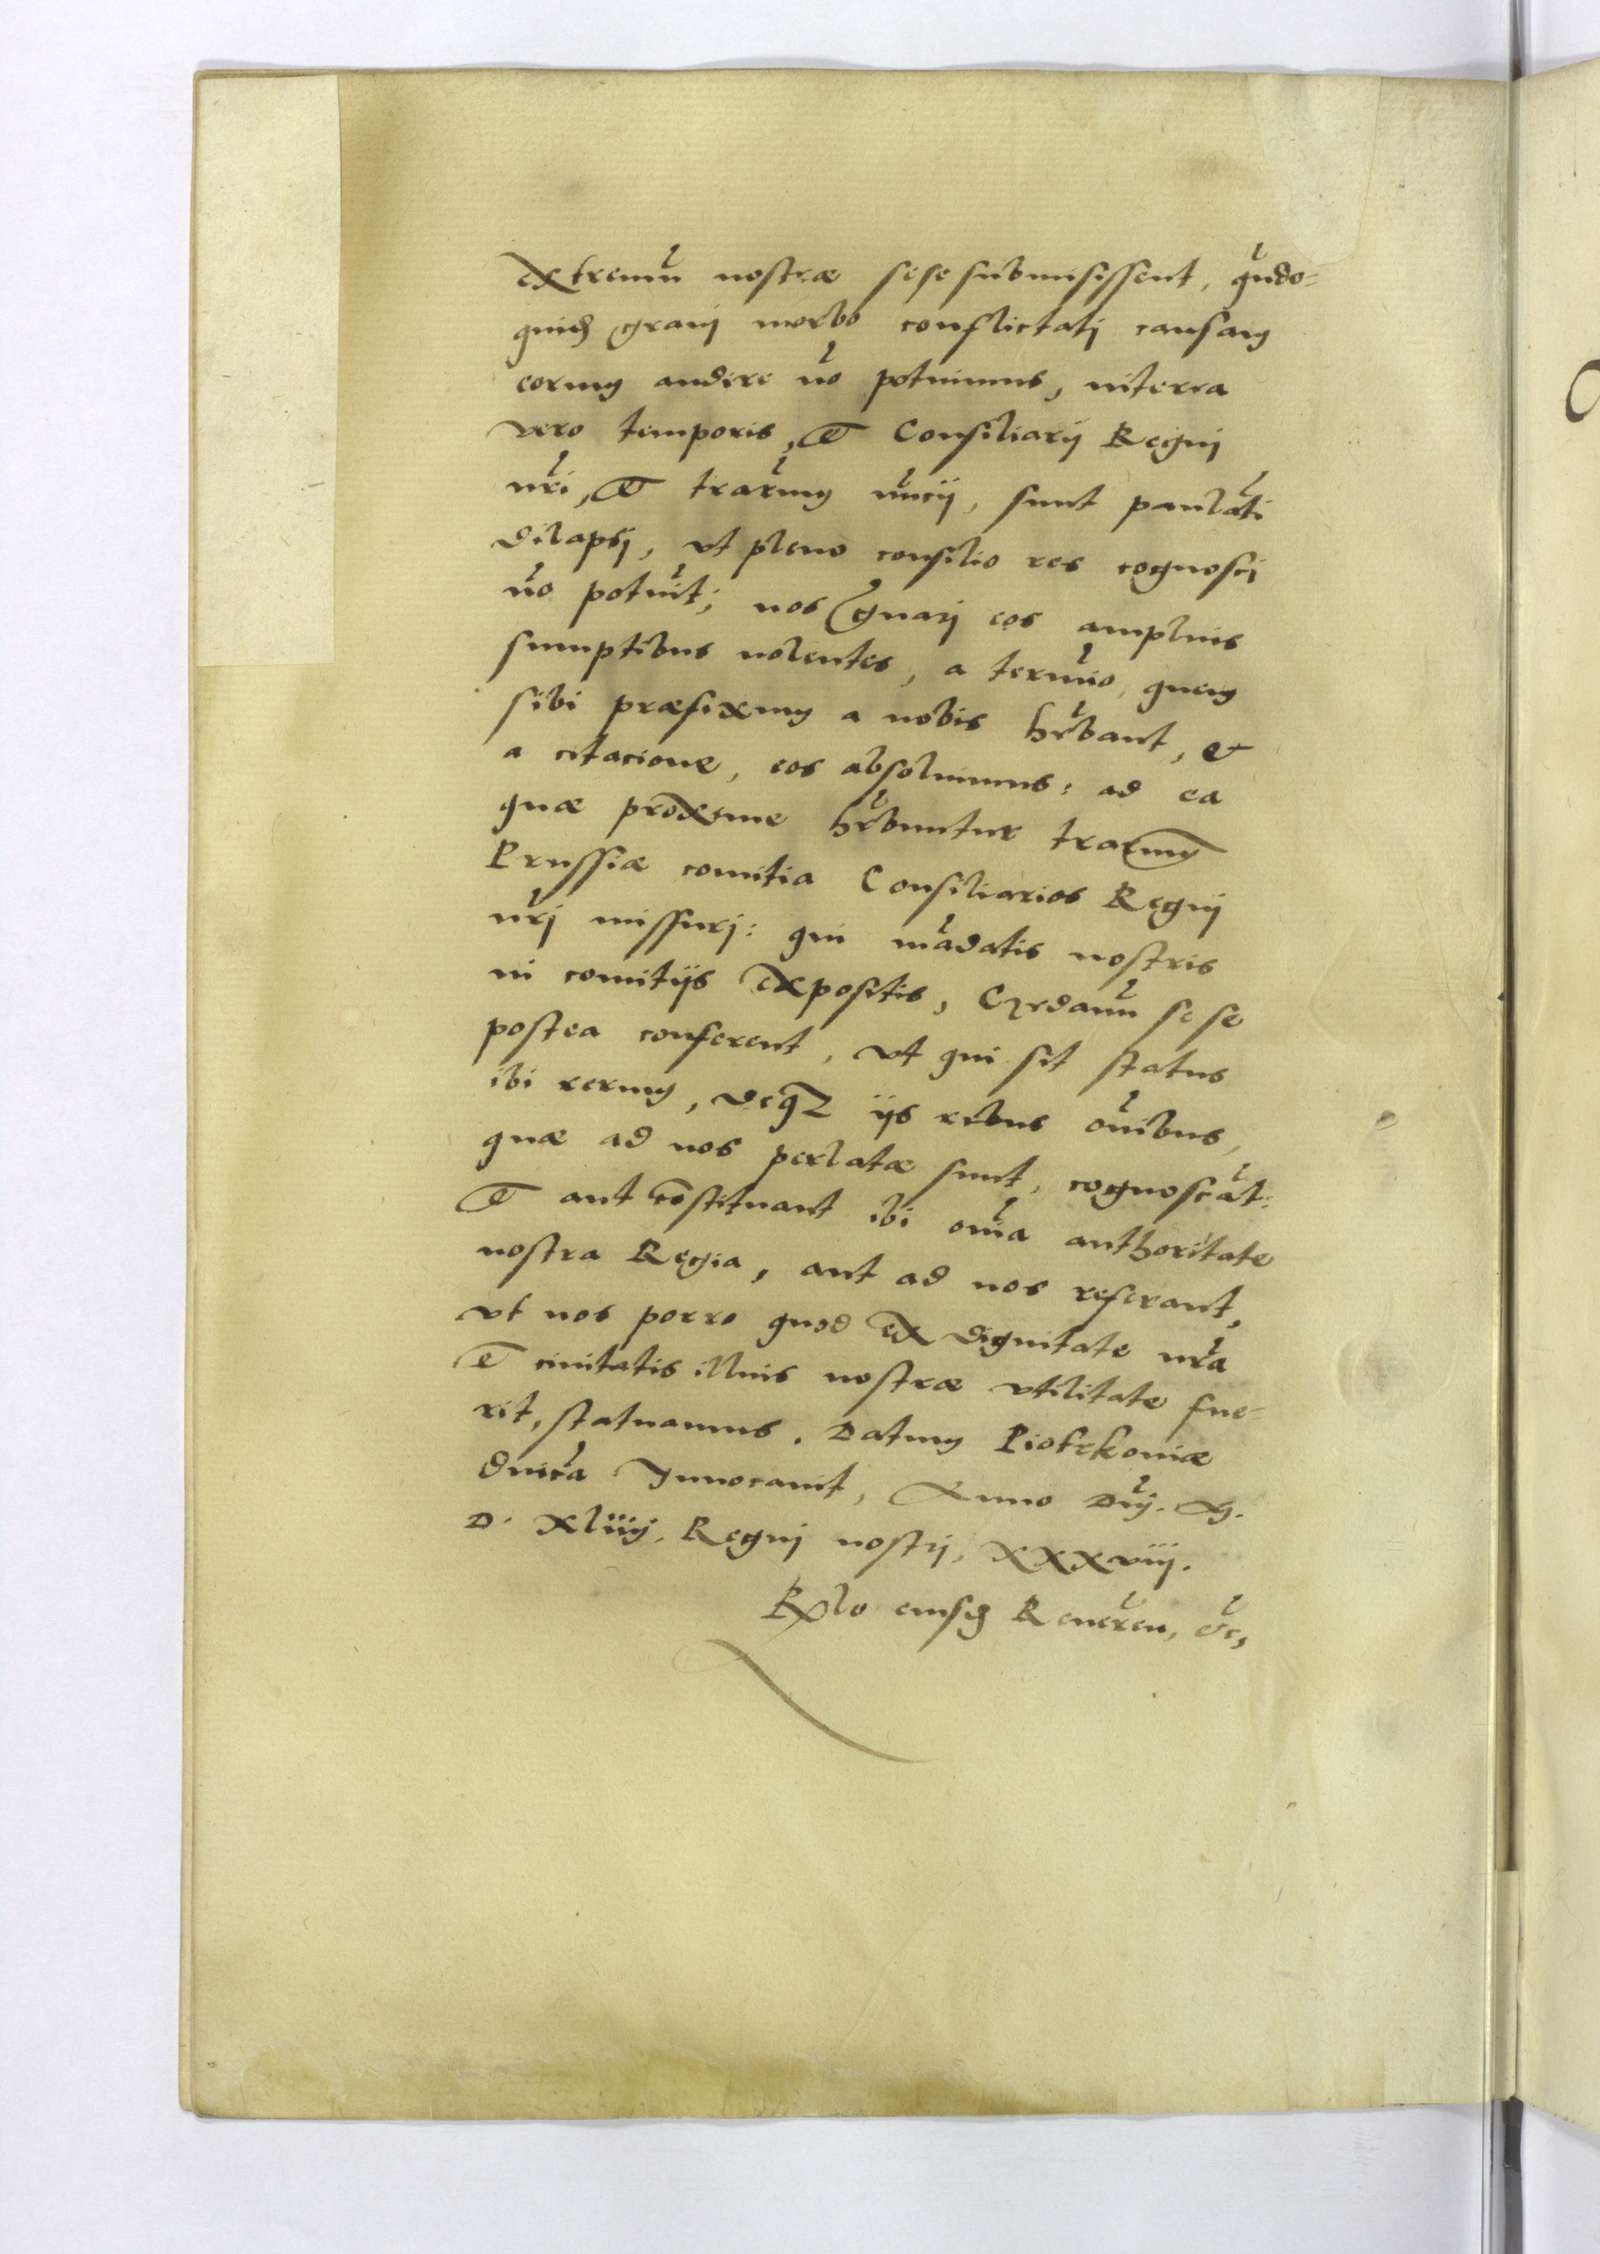 extremũ nostræ sese submisissent, qũdo-
quidẽ graui morbo conflictati causam
eorum audire nõ potuimus, interea
vero temporis, et Consiliarij Regni
nr̃i, et trarũm nũcij, sunt paulatĩ
dilapsi, vt pleno consilio res cognosci
nõ potuĩt; nos grauj eos amplius
sumptibus nolentes, a termĩo, quem
sibi præfixum a nobis hr̃bant, et
a citacione, eos absoluimus: ad ea
quæ proxime hr̃buntur trarum
Prussiæ comitia Consiliarios Regnj
nr̃j missurj: qui mãdatis nostris
in comitijs expositis, Gedanũ sese
postea conferent, vt qui sit status
ibi rerum, deqꝫ ijs rebus oĩbus,
quæ ad nos perlatæ sunt, cognoscãt:
et aut cõstituant ibi oĩa authoritate
nostra Regia, aut ad nos referant,
vt nos porro quod ex dignitate nr̃a
et ciuitatis illius nostræ vtilitate fue-
rit, statuamus. Datum Piotrkouiæ
dnĩca Inuocauit, Anno Dñj. M.
D. xliiij. Regnj nostrj, xxxviij.
Rlo eiusd Reueren, &c,